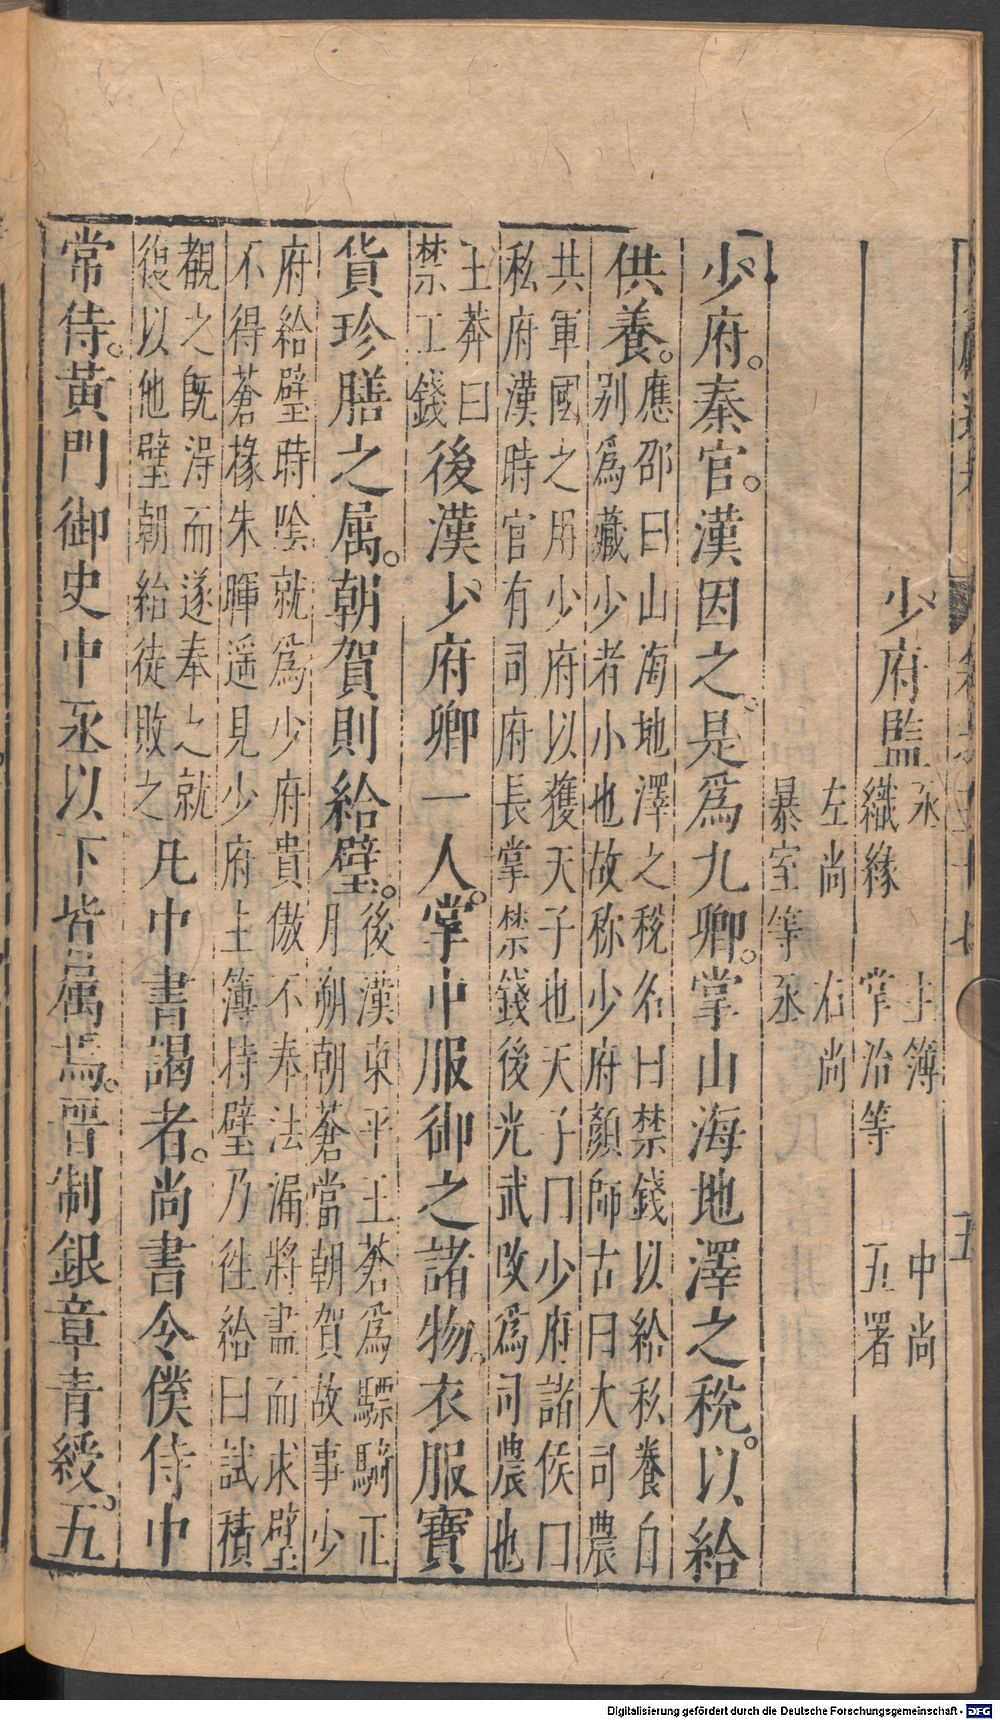 少府監
丞　主簿　中尚
織緣　掌治等　五署
左尚　右尚
暴室等丞
少府。秦官。漢因之、是爲九卿。掌山海地澤之稅。以給
供養。
應邵曰山海地澤之稅名曰禁錢以給私養自
別爲藏少者小也故称少府顏師古曰大司農
共軍國之用少府以獲天子也天子口少府諸侯口
私府漢時官有司府長掌禁錢後光武改爲司農也
王莽曰
禁工錢
後漢少府卿一人。掌中服御之諸物。衣服寶
貨珍膳之属。朝賀則給璧。
後漢東平王蒼爲驃騎正
月朔朝蒼當朝賀故事少
府給璧時陰就爲少府貴傲不奉法漏將盡而求璧
不得蒼掾朱暉遥見少府主簿持璧乃徃給曰試積
觀之既淂而遂奉之就
復以他璧朝給徒敗之
凡中書謁者。尚書令僕侍中
常侍。黃門御史中丞以下皆属焉。晋制銀章青綬。五
Digitalisierung gefördert durch die Deutsche Forschungsgemeinschaft - DFG